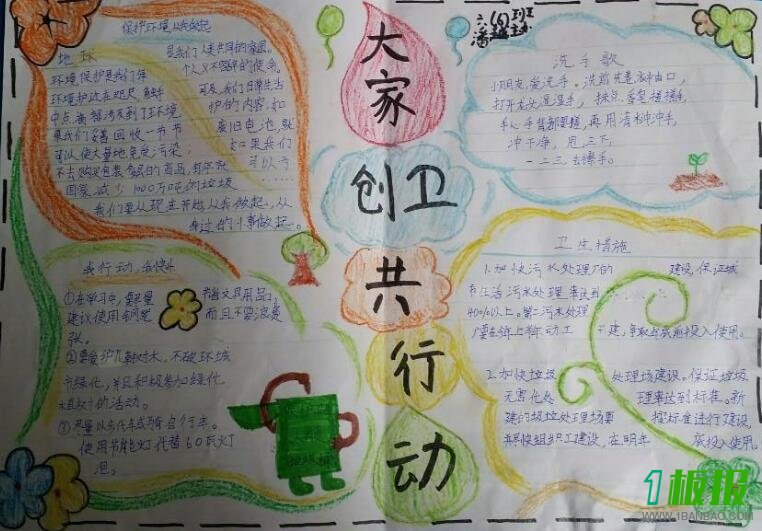 保护环境从我做起
地球是我们人类共同的家园。
环境保护是我们每个义不容辞的使命。
环境护这在咫尺
护的内容:如
果我们每回收一节节废旧电池,就
可以使大量地免受污染;如果我们
不去购买包装
国家减少1000万吨的垃圾……
我们要从现在开始从我做起,从
身边的小事做起。
六(四)班
大家
创卫
共
行
动
洗手歌
小朋友,爱洗手。洗前先卷袖口,
打开龙头湿湿手,抹点香皂搓搓手,
手心手背都要搓,再用清水冲冲手,
冲干净,甩三下,
一二三去擦手。
我行动,
①在学习中,要尽量
建议使用
而且不要浪费
张。
②要爱护花草树木,不破环城
市绿化,并且积极参加绿化、
植树的活动。
③尽量以步代车或骑自行车。
使用节能灯代替60瓦灯
泡。
卫生措施
1.加快污水处理厂的建设,保证城
市生活污水处理率达到
40%以上。第二污水处理
厂要在年上
建,争取年底前投入使用。
2.加快垃圾处理场建设。保证垃圾
无害化处理率达到标准。新
建的垃圾处理场要按标准进行建设,
尽快组织工建设,在明年底投入使用
1板报
WWW.1BANBAO.COM